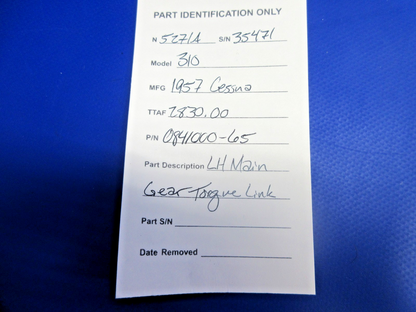 PART IDENTIFICATION ONLY
N 5271A S/N 35471
Model 310
MFG 1957 Cessna
TTAF 2830.00
P/N 0841000-65
Part Description LH Main
Gear Torque Link
Part S/N
Date Removed